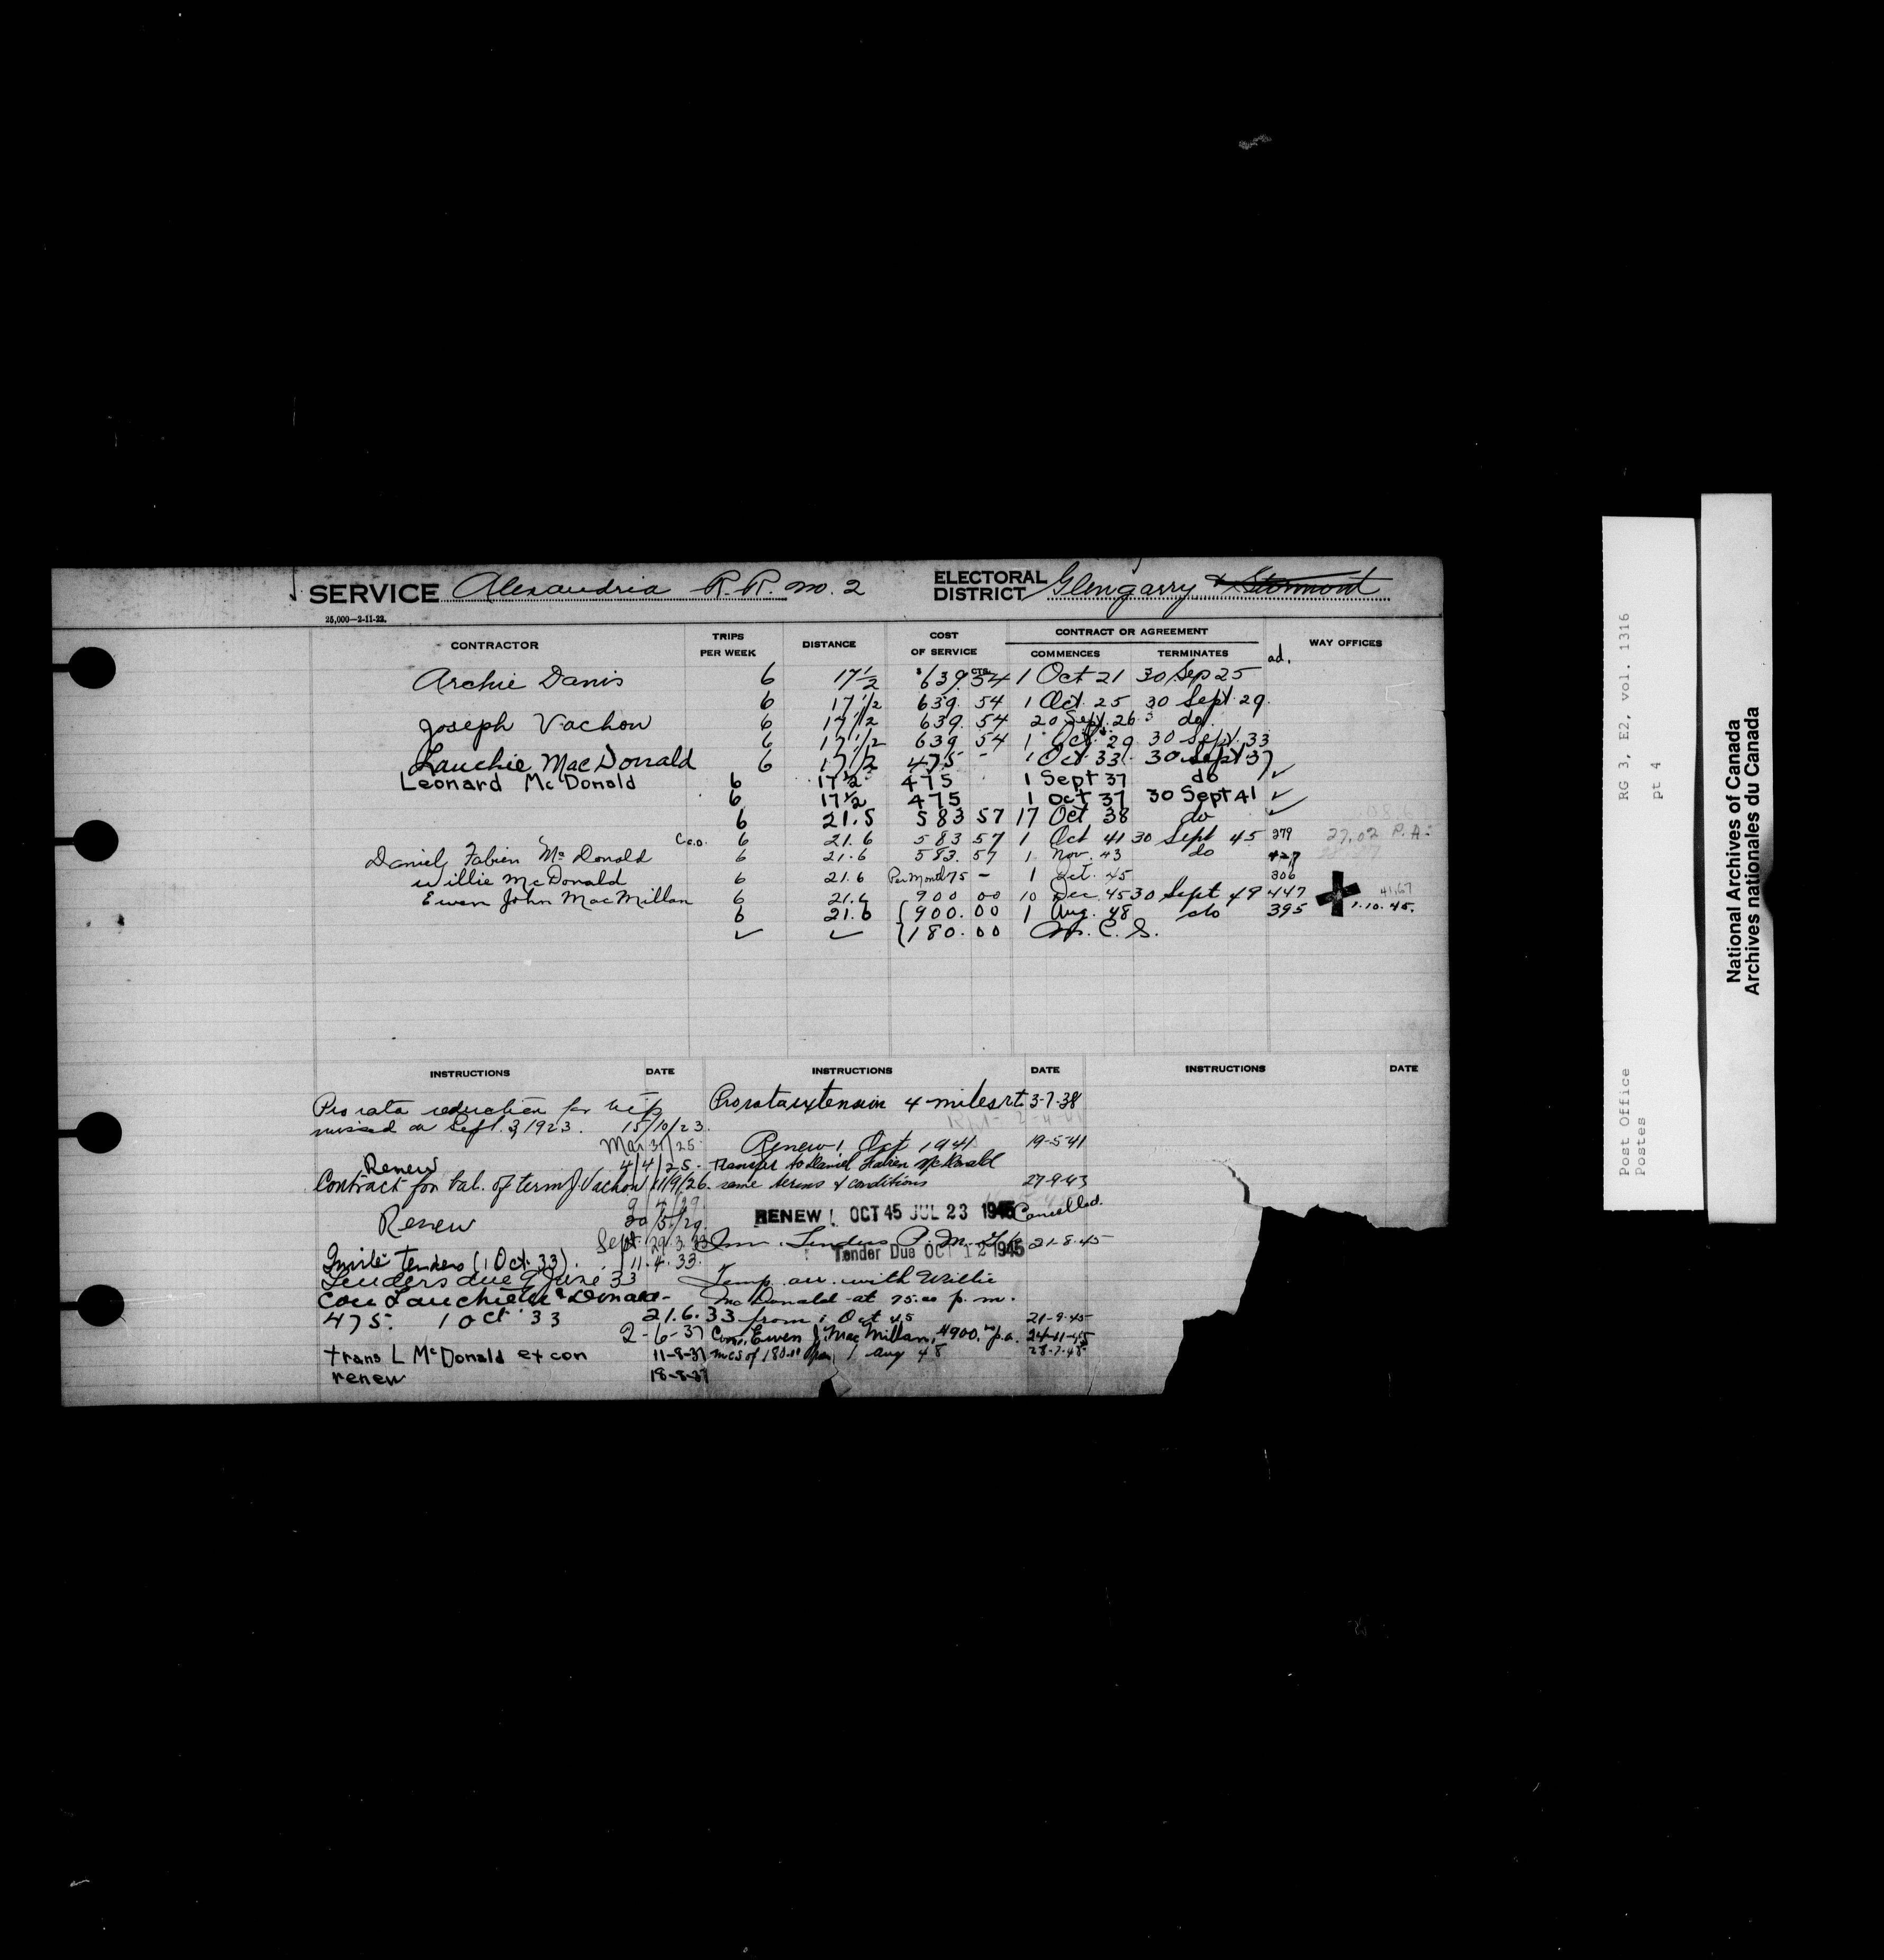 SERVICE Alexandria R.R. no. 2 ELECTORAL DISTRICT Glengarry & Stormont
25,000—2-11-22.
CONTRACTOR TRIPS PER WEEK DISTANCE COST OF SERVICE CONTRACT OR AGREEMENT COMMENCES TERMINATES ad. WAY OFFICES
Archie Danis 6 17 1/2 $639. CTS. 54 1 Oct 21 30 Sep 25
6 17 1/2 639. 54 1 Oct. 25 30 Sept. 29.
Joseph Vachon 6 17 1/2 639. 54 20 Sept. 26 do.
6 17 1/2 639 54 1 Oct. 29 30 Sept. 33
Lauchie MacDonald 6 17 1/2 475 - 1 Oct 33 30 Sept 37
Leonard McDonald 6 17 1/2 475 1 Sept 37 do ✓
6 17 1/2 475 1 Oct 37 30 Sept 41 ✓
6 21.5 583 57 17 Oct 38 do ✓
6 21.6 583 57 1 Oct 41 30 Sept 45 279 27.02 P.A.
Daniel Fabien McDonald 6 21.6 583. 57 1 Nov. 43 do 427
Willie McDonald 6 21.6 Per Month 75 - 1 Oct. 45 306
Ewen John MacMillan 6 21.6 900 00 10 Dec. 45 30 Sept 49 447 41.67
6 21.6 {900.00 1 Aug. 48 do 395 1.10.45.
✓ ✓ {180.00 C. S.
INSTRUCTIONS DATE INSTRUCTIONS DATE INSTRUCTIONS DATE
Pro rata reduction for trip
missed on Sept. 3, 1923. 15/10/23.
Mar 31/25
Renew 4/4/25.
Contract for bal. of term J Vachon 11/9/26.
9/4/29.
Renew 20/5/29.
Sept. 29.3.33
Invite tenders (1 Oct. 33). 11.4.33.
Tenders due 9 June 33
Con Lauchie McDonald
475. 1 Oct 33 21.6.33
2-6-37
trans L McDonald et con 11-8-37
renew 18-8-37
Pro rata extension 4 miles rt 3-7-38
Renew 1 Oct 1941 19-5-41
Transfer to Daniel Fabien McDonald
same terms & conditions 27-9-43
RENEW 1 OCT 45 JUL 23 1945 Cancelled.
Tenders P.M. 21-8-45
Tender Due OCT 12 1945
Temp. arr. with Willie
McDonald at 75.00 p.m.
from 1 Oct 45 21-9-45
Con. Ewen J. MacMillan, $900.00 p.a. 24-11-45
mcs of 180.00 pa, 1 Aug 48 28-7-48
Post Office RG 3, E2, vol. 1316
Postes pt 4
National Archives of Canada
Archives nationales du Canada